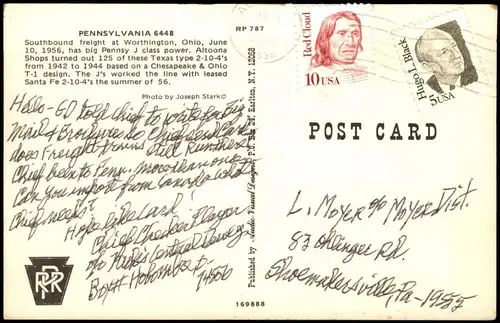 PENNSYLVANIA 6448
Southbound freight at Worthington, Ohio, June
10, 1956, has big Pennsy J class power. Altoona
Shops turned out 125 of these Texas type 2-10-4's
from 1942 to 1944 based on a Chesapeake & Ohio
T-1 design. The J's worked the line with leased
Santa Fe 2-10-4's the summer of 56.
Photo by Joseph Stark©
Hello - GD told Chief to write for
Mail of Brochures to Chief Send Card
does Freight trains still Run there
Chief been to Penn. more than once
Can you import from Canada what
Chief needs?
Hope like Card!
Chief Checker Player
c/o
Box
14556
PRR
RP 787
Published by Audio Visual Designs,
169888
Red Cloud
10 USA
Hugo L. Black
5 USA
POST CARD
L. Moyer c/o Moyer Dist.
83 Ohlinger Rd.
Shoemakersville, Pa - 19555